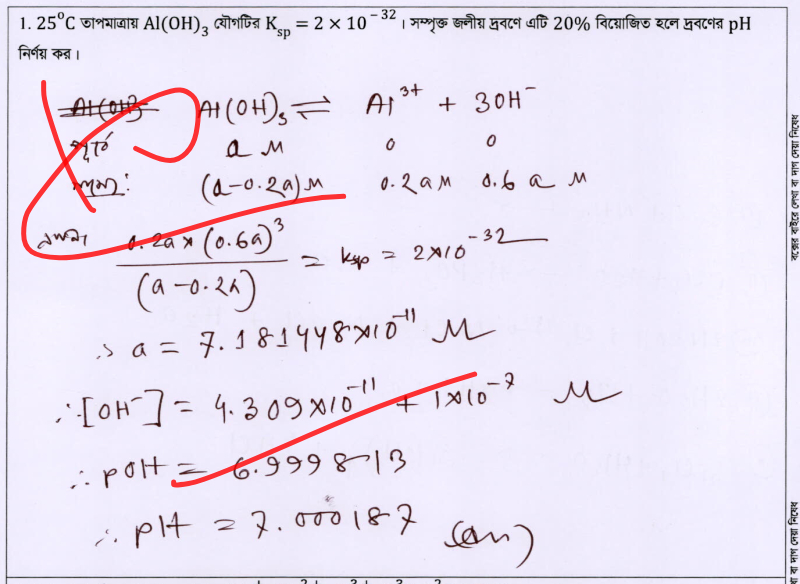 1. 25°C তাপমাত্রায় Al(OH)₃ যৌগটির Kₛₚ = 2 × 10⁻³²। সম্পৃক্ত জলীয় দ্রবণে এটি 20% বিয়োজিত হলে দ্রবণের pH
নির্ণয় কর।
Al(OH)₃ ⇌ Al³⁺ + 3OH⁻
a M 0 0
(a-0.2a)M 0.2a M 0.6 a M
0.2a × (0.6a)³ / (a-0.2a) = Ksp = 2×10⁻³²
∴ a = 7.181448×10⁻¹¹ M
∴ [OH⁻] = 4.309×10⁻¹¹ + 1×10⁻⁷ M
∴ pOH = 6.999813
∴ pH = 7.000187 (Ans)
বক্সের বাইরে লেখা বা দাগ দেয়া নিষেধ
বা দাগ দেয়া নিষেধ